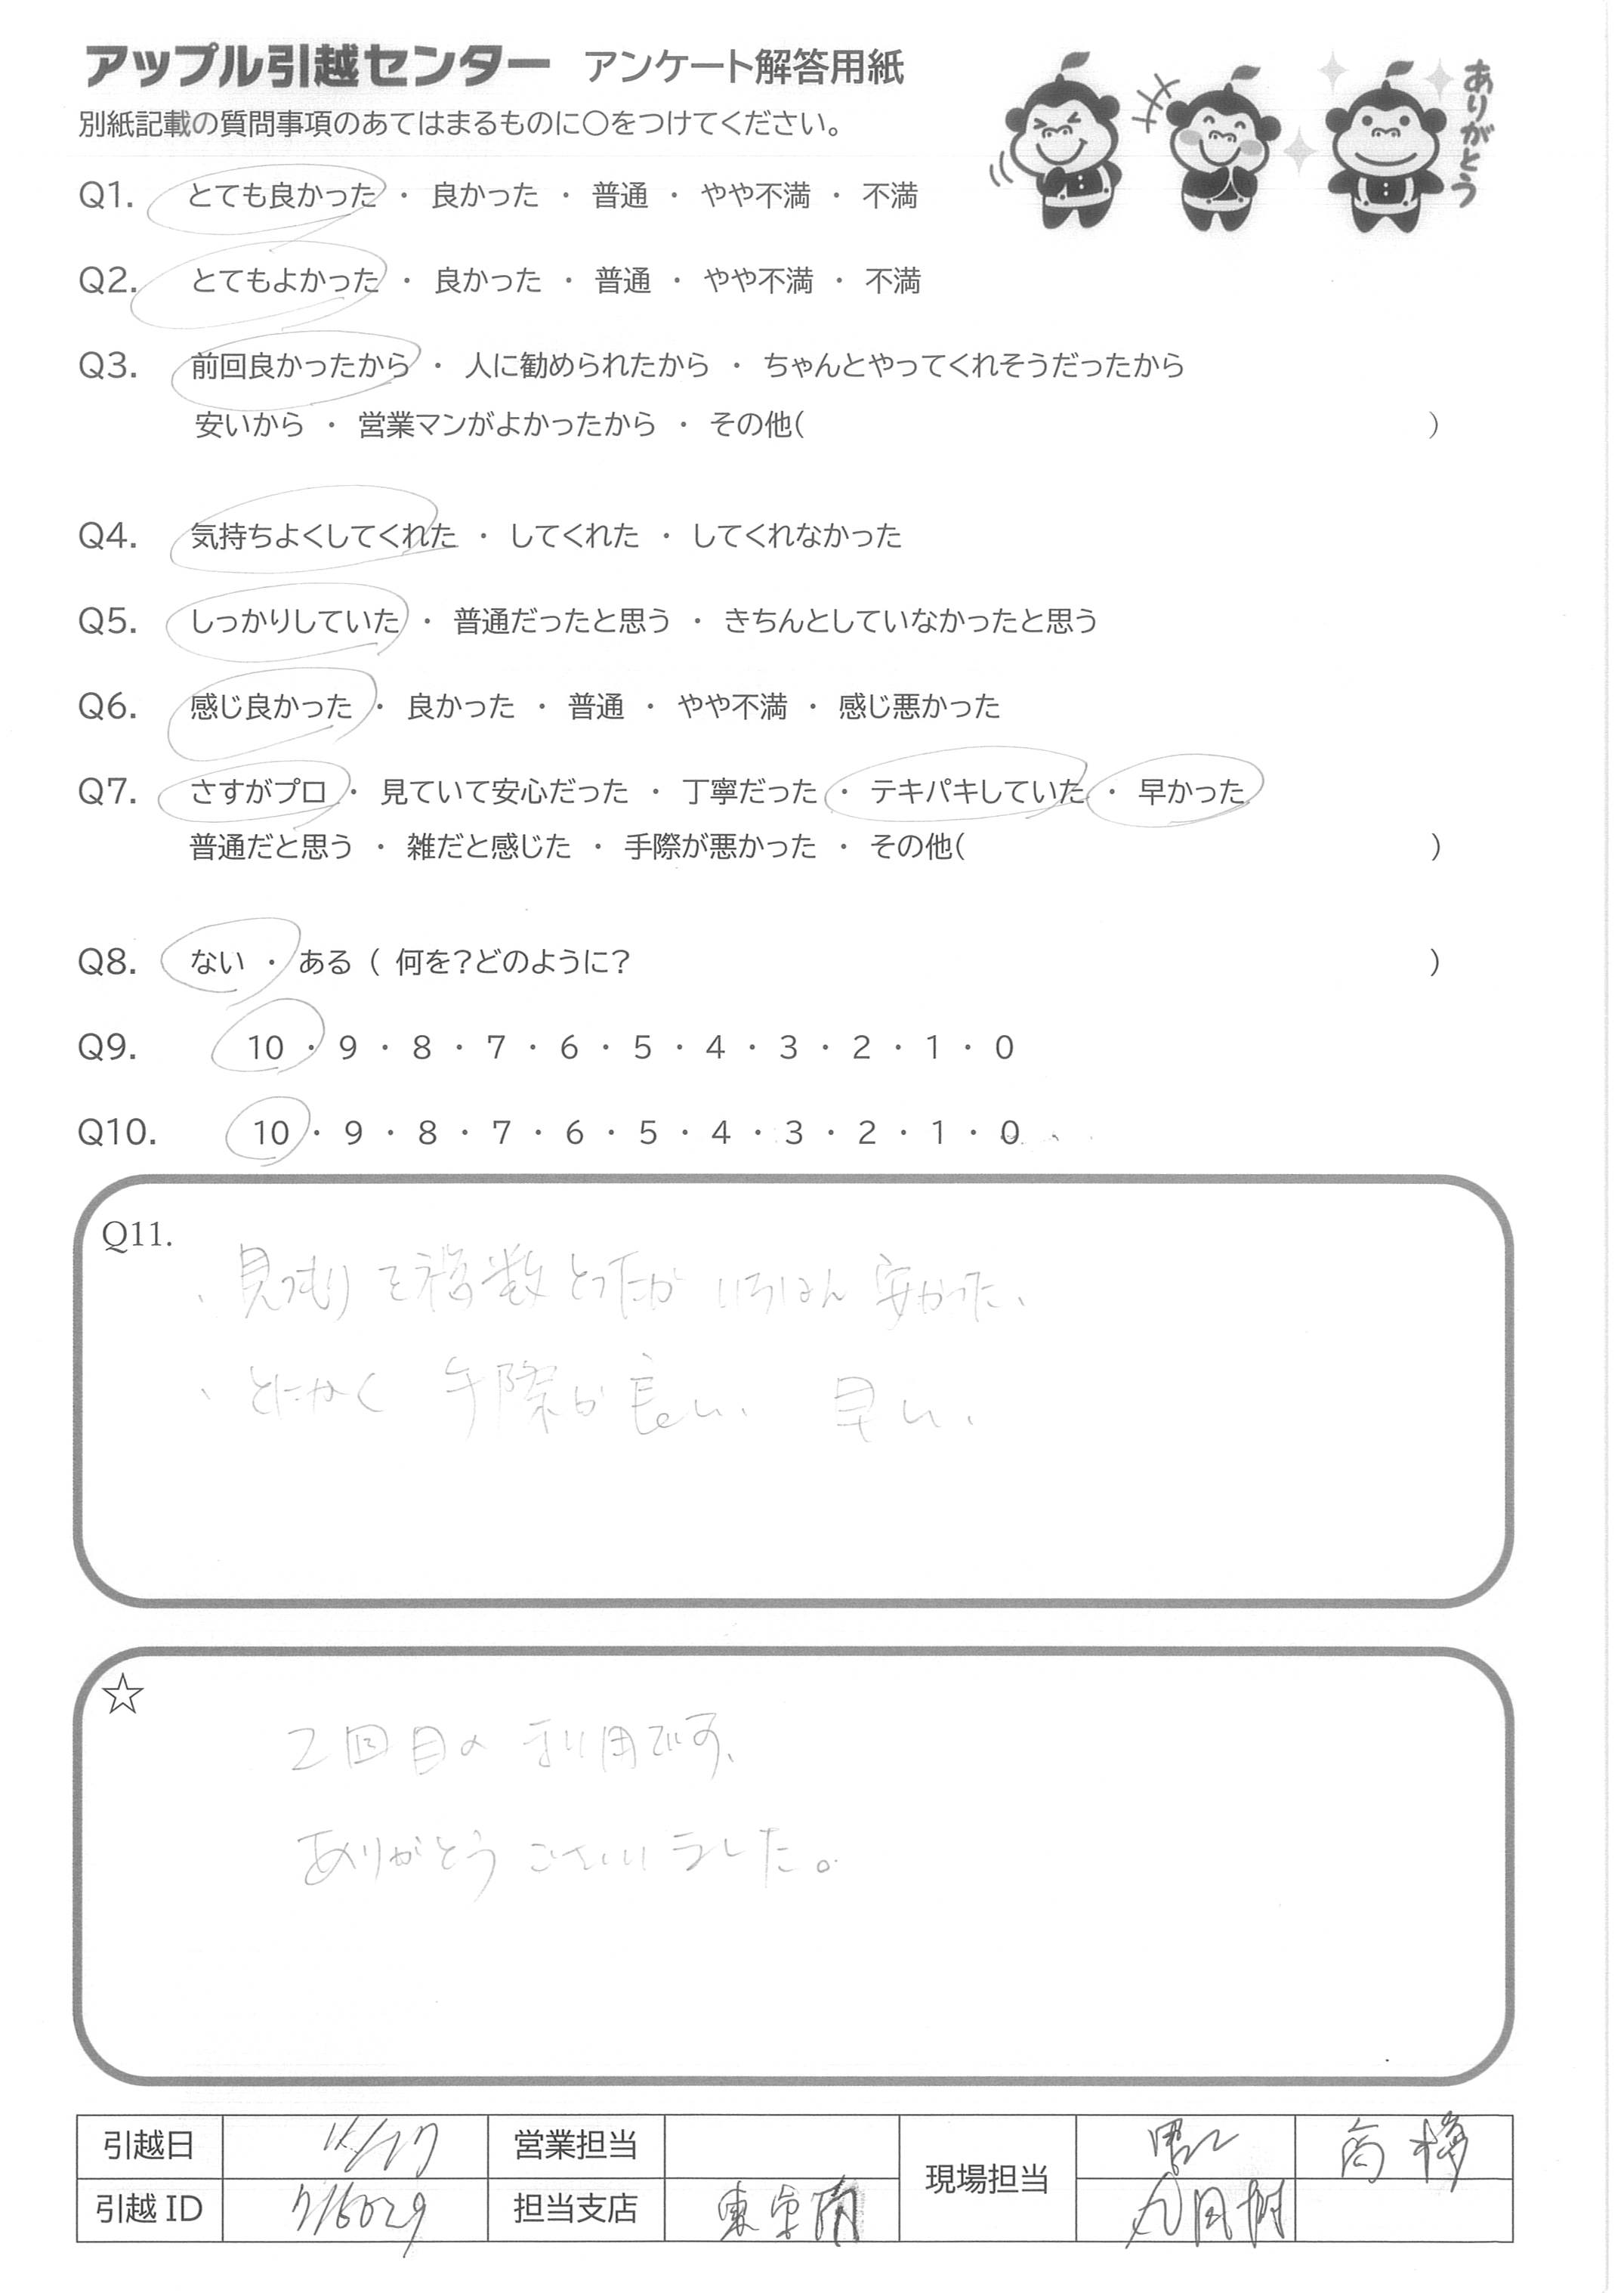 アップル引越センター アンケート解答用紙
ありがとう
別紙記載の質問事項のあてはまるものに○をつけてください。
Q1. とても良かった ・ 良かった ・ 普通 ・ やや不満 ・ 不満
Q2. とてもよかった ・ 良かった ・ 普通 ・ やや不満 ・ 不満
Q3. 前回良かったから ・ 人に勧められたから ・ ちゃんとやってくれそうだったから
安いから ・ 営業マンがよかったから ・ その他( )
Q4. 気持ちよくしてくれた ・ してくれた ・ してくれなかった
Q5. しっかりしていた ・ 普通だったと思う ・ きちんとしていなかったと思う
Q6. 感じ良かった ・ 良かった ・ 普通 ・ やや不満 ・ 感じ悪かった
Q7. さすがプロ ・ 見ていて安心だった ・ 丁寧だった ・ テキパキしていた ・ 早かった
普通だと思う ・ 雑だと感じた ・ 手際が悪かった ・ その他( )
Q8. ない ・ ある ( 何を?どのように? )
Q9. 10 ・ 9 ・ 8 ・ 7 ・ 6 ・ 5 ・ 4 ・ 3 ・ 2 ・ 1 ・ 0
Q10. 10 ・ 9 ・ 8 ・ 7 ・ 6 ・ 5 ・ 4 ・ 3 ・ 2 ・ 1 ・ 0
Q11.
、見つもりを複数とったが いちばん 安かった、
、とにかく 手際が良い、 早い、
☆
2回目の 利用です、
ありがとう ございました。
引越日 営業担当 現場担当
引越 ID 716029 担当支店 東京南